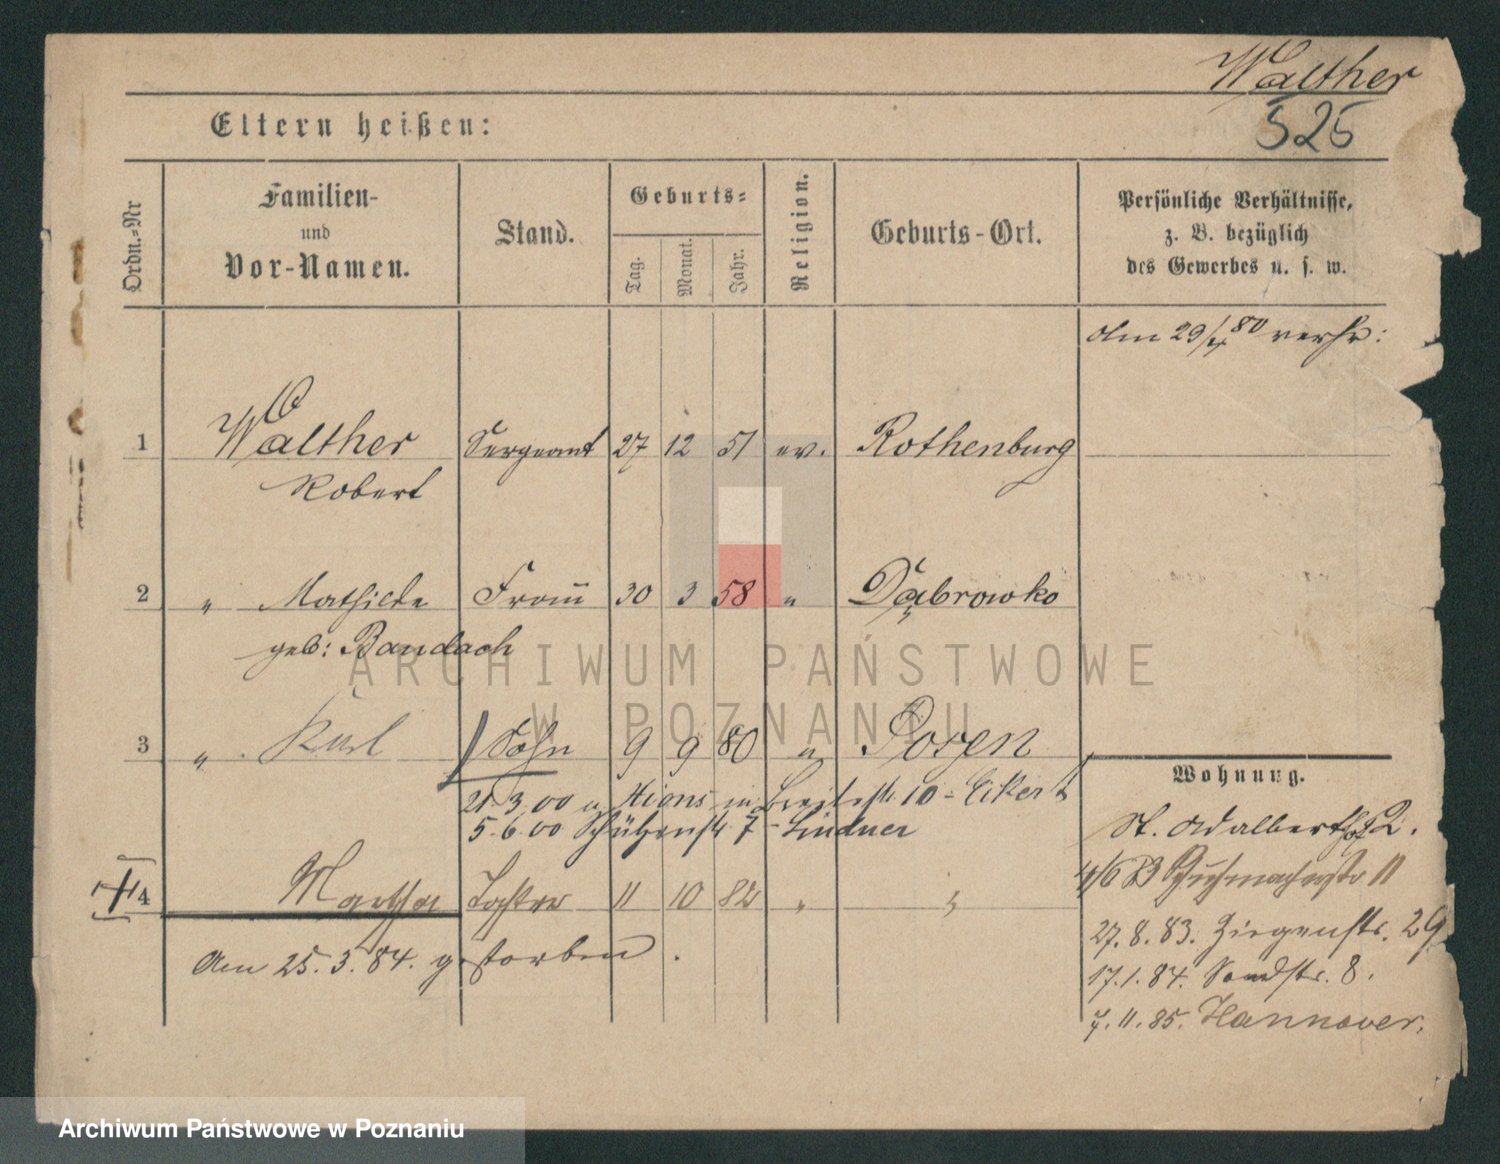 Walther
525
Eltern heißen:
Ordn.-Nr
Familien-
und
Vor-Namen.
Stand.
Geburts-
Tag. Monat. Jahr.
Religion.
Geburts-Ort.
Persönliche Verhältnisse,
z. B. bezüglich
des Gewerbes u. s. w.
Am 29/4 80 verh:
1 Walther Sergeant 27 12 51 ev. Rothenburg
Robert
2 " Mathilde Frau 30 3 58 " Dąbrowko
geb: Bandach
3 " Karl Sohn 9 9 80 " Posen
Wohnung.
21.3.00 in Breitestr 10 - Eikert
5.6.00 Schützenstr 7 - Lindner
St. Adalbert 2.
4 Martha Tochter 11 10 82 " "
4/6 83 Schuhmacherstr 11
27.8.83. Ziegenstr. 29
Am 25.3.84. gestorben.
17.1.84. Sandstr. 8.
7.11.85. Hannover.
ARCHIWUM PAŃSTWOWE
W POZNANIU
Archiwum Państwowe w Poznaniu